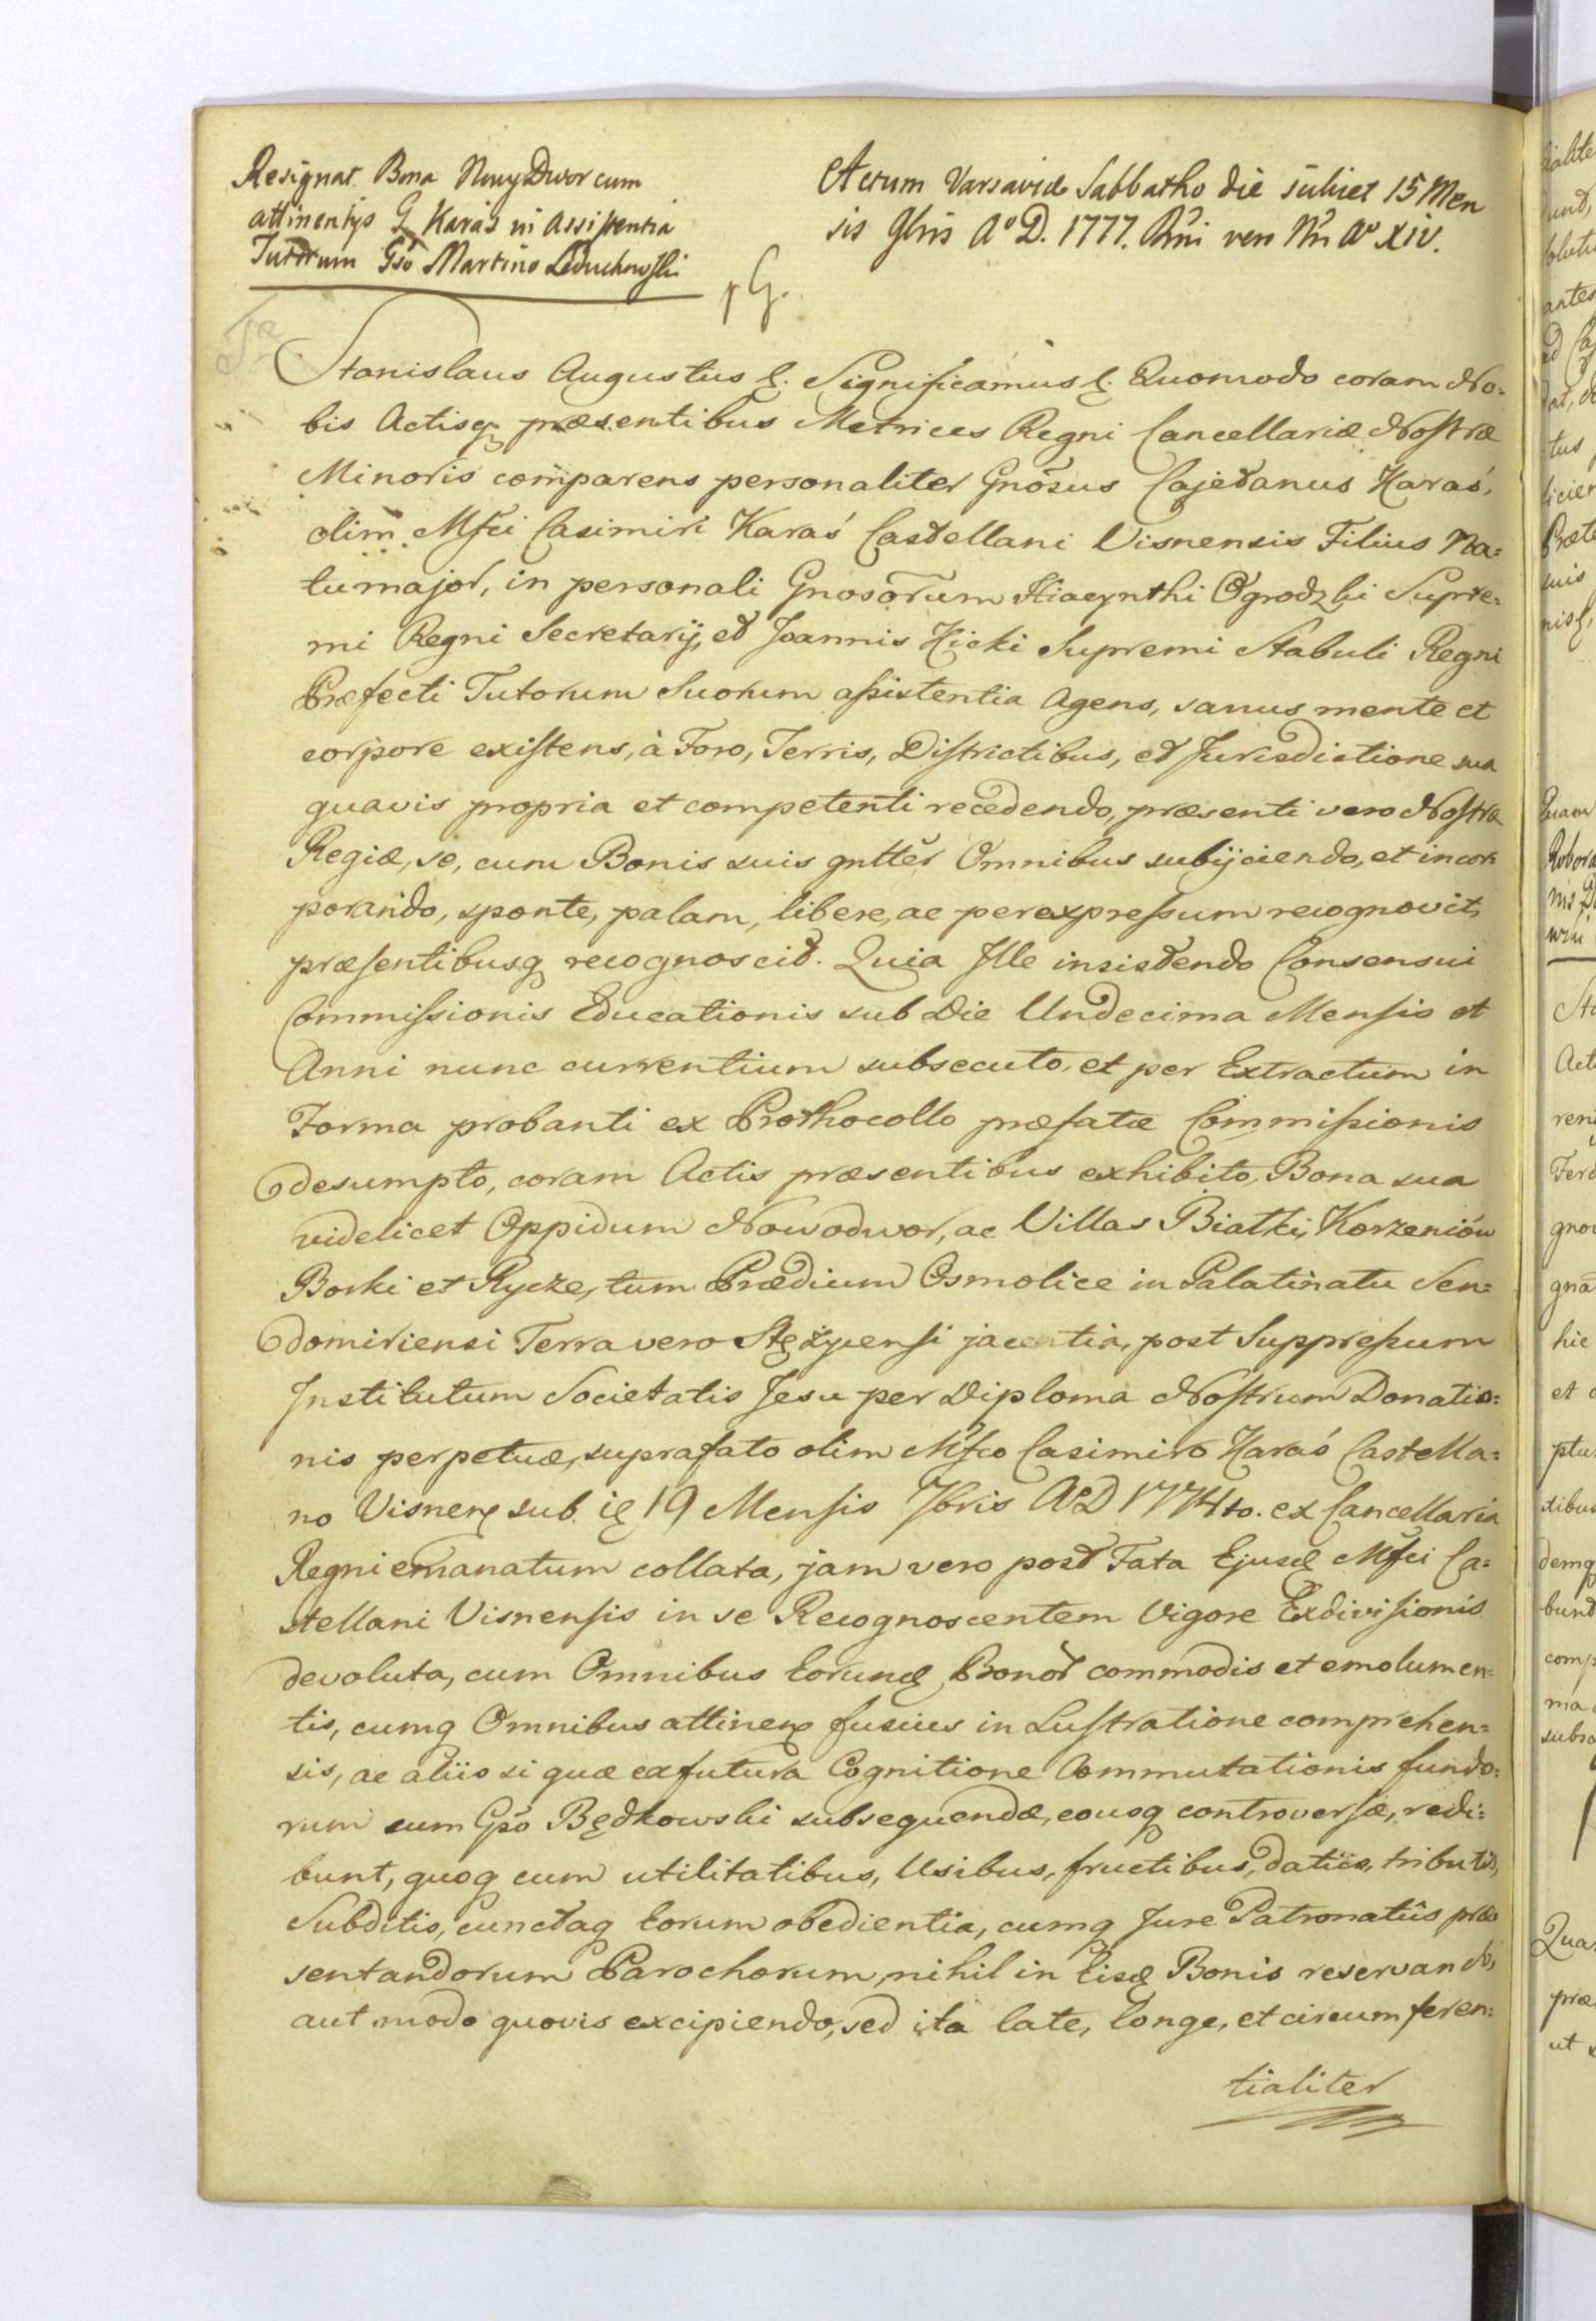 Resignat. Bona NowyDwor cum
attinentijs G Karaś in Assistentia
Tutorum Gso Martino Leduchowski
Actum Varsaviæ Sabbatho die scilicet 15 Men
sis 9bris A° D. 1777. Rñi vero Nri A° XIV.
Stanislaus Augustus &. Significamus &. Quomodo coram No=
bis Actisq præsentibus Metrices Regni Cancellariæ Nostræ
Minoris comparens personaliter Gnõsus Cajetanus Karaś,
olim Mfci Casimiri Karaś Castellani Visnensis Filius Na=
tu major, in personali Gnosõrum Hiacynthi Ogrodzki Supre=
mi Regni Secretarij, et Joannis Kicki Supremi Stabuli Regni
Præfecti Tutorum Suorum assistentia Agens, sanus mente et
corpore existens, à Foro, Terris, Districtibus, et Jurisdictione sua
quavis propria et competenti recedendo, præsenti vero Nostræ
Regiæ, se, cum Bonis suis gnttẽr Omnibus subijciendo, et incor=
porando, sponte, palam, libere, ac per expressum recognovit,
præsentibusq recognoscit. Quia Ille insistendo Consensui
Commissionis Educationis sub Die Undecima Mensis et
Anni nunc currentium subsecuto, et per Extractum in
Forma probanti ex Prothocollo præfatæ Commissionis
desumpto, coram Actis præsentibus exhibito, Bona sua
videlicet Oppidum Nowodwor, ac Villas Białki, Korzeniów
Borki et Rycze, tum Prædium Osmolice in Palatinatu Sen=
domiriensi Terra vero Stężycensi jacentia, post Suppressum
Institutum Societatis Jesu per Diploma Nostrum Donatio=
nis perpetuæ, suprafato olim Mfco Casimiro Karaś Castella=
no Visnen sub 19 Mensis Xbris A°D 1774to. ex Cancellaria
Regni emanatum collata, jam vero post Fata Ejusd Mfci Ca=
stellani Visnensis in se Recognoscentem Vigore Exdivisionis
devoluta, cum Omnibus Eorund Bonor commodis et emolumen=
tis, cumq Omnibus attinen fusius in Lustratione comprehen=
sis, ac aliis si quæ ex futura Cognitione Commutationis fundo=
rum cum Gso Będkowski subsequendæ, eousq controversæ, redi=
bunt, quoq cum utilitatibus, Usibus, fructibus, datiis, tributis,
Subditis, cunctaq Eorum obedientia, cumq Jure Patronatûs præ
sentandorum Parochorum, nihil in Eisd Bonis reservando,
aut modo quovis excipiendo, sed ita late, longe, et circumferen=
tialiter